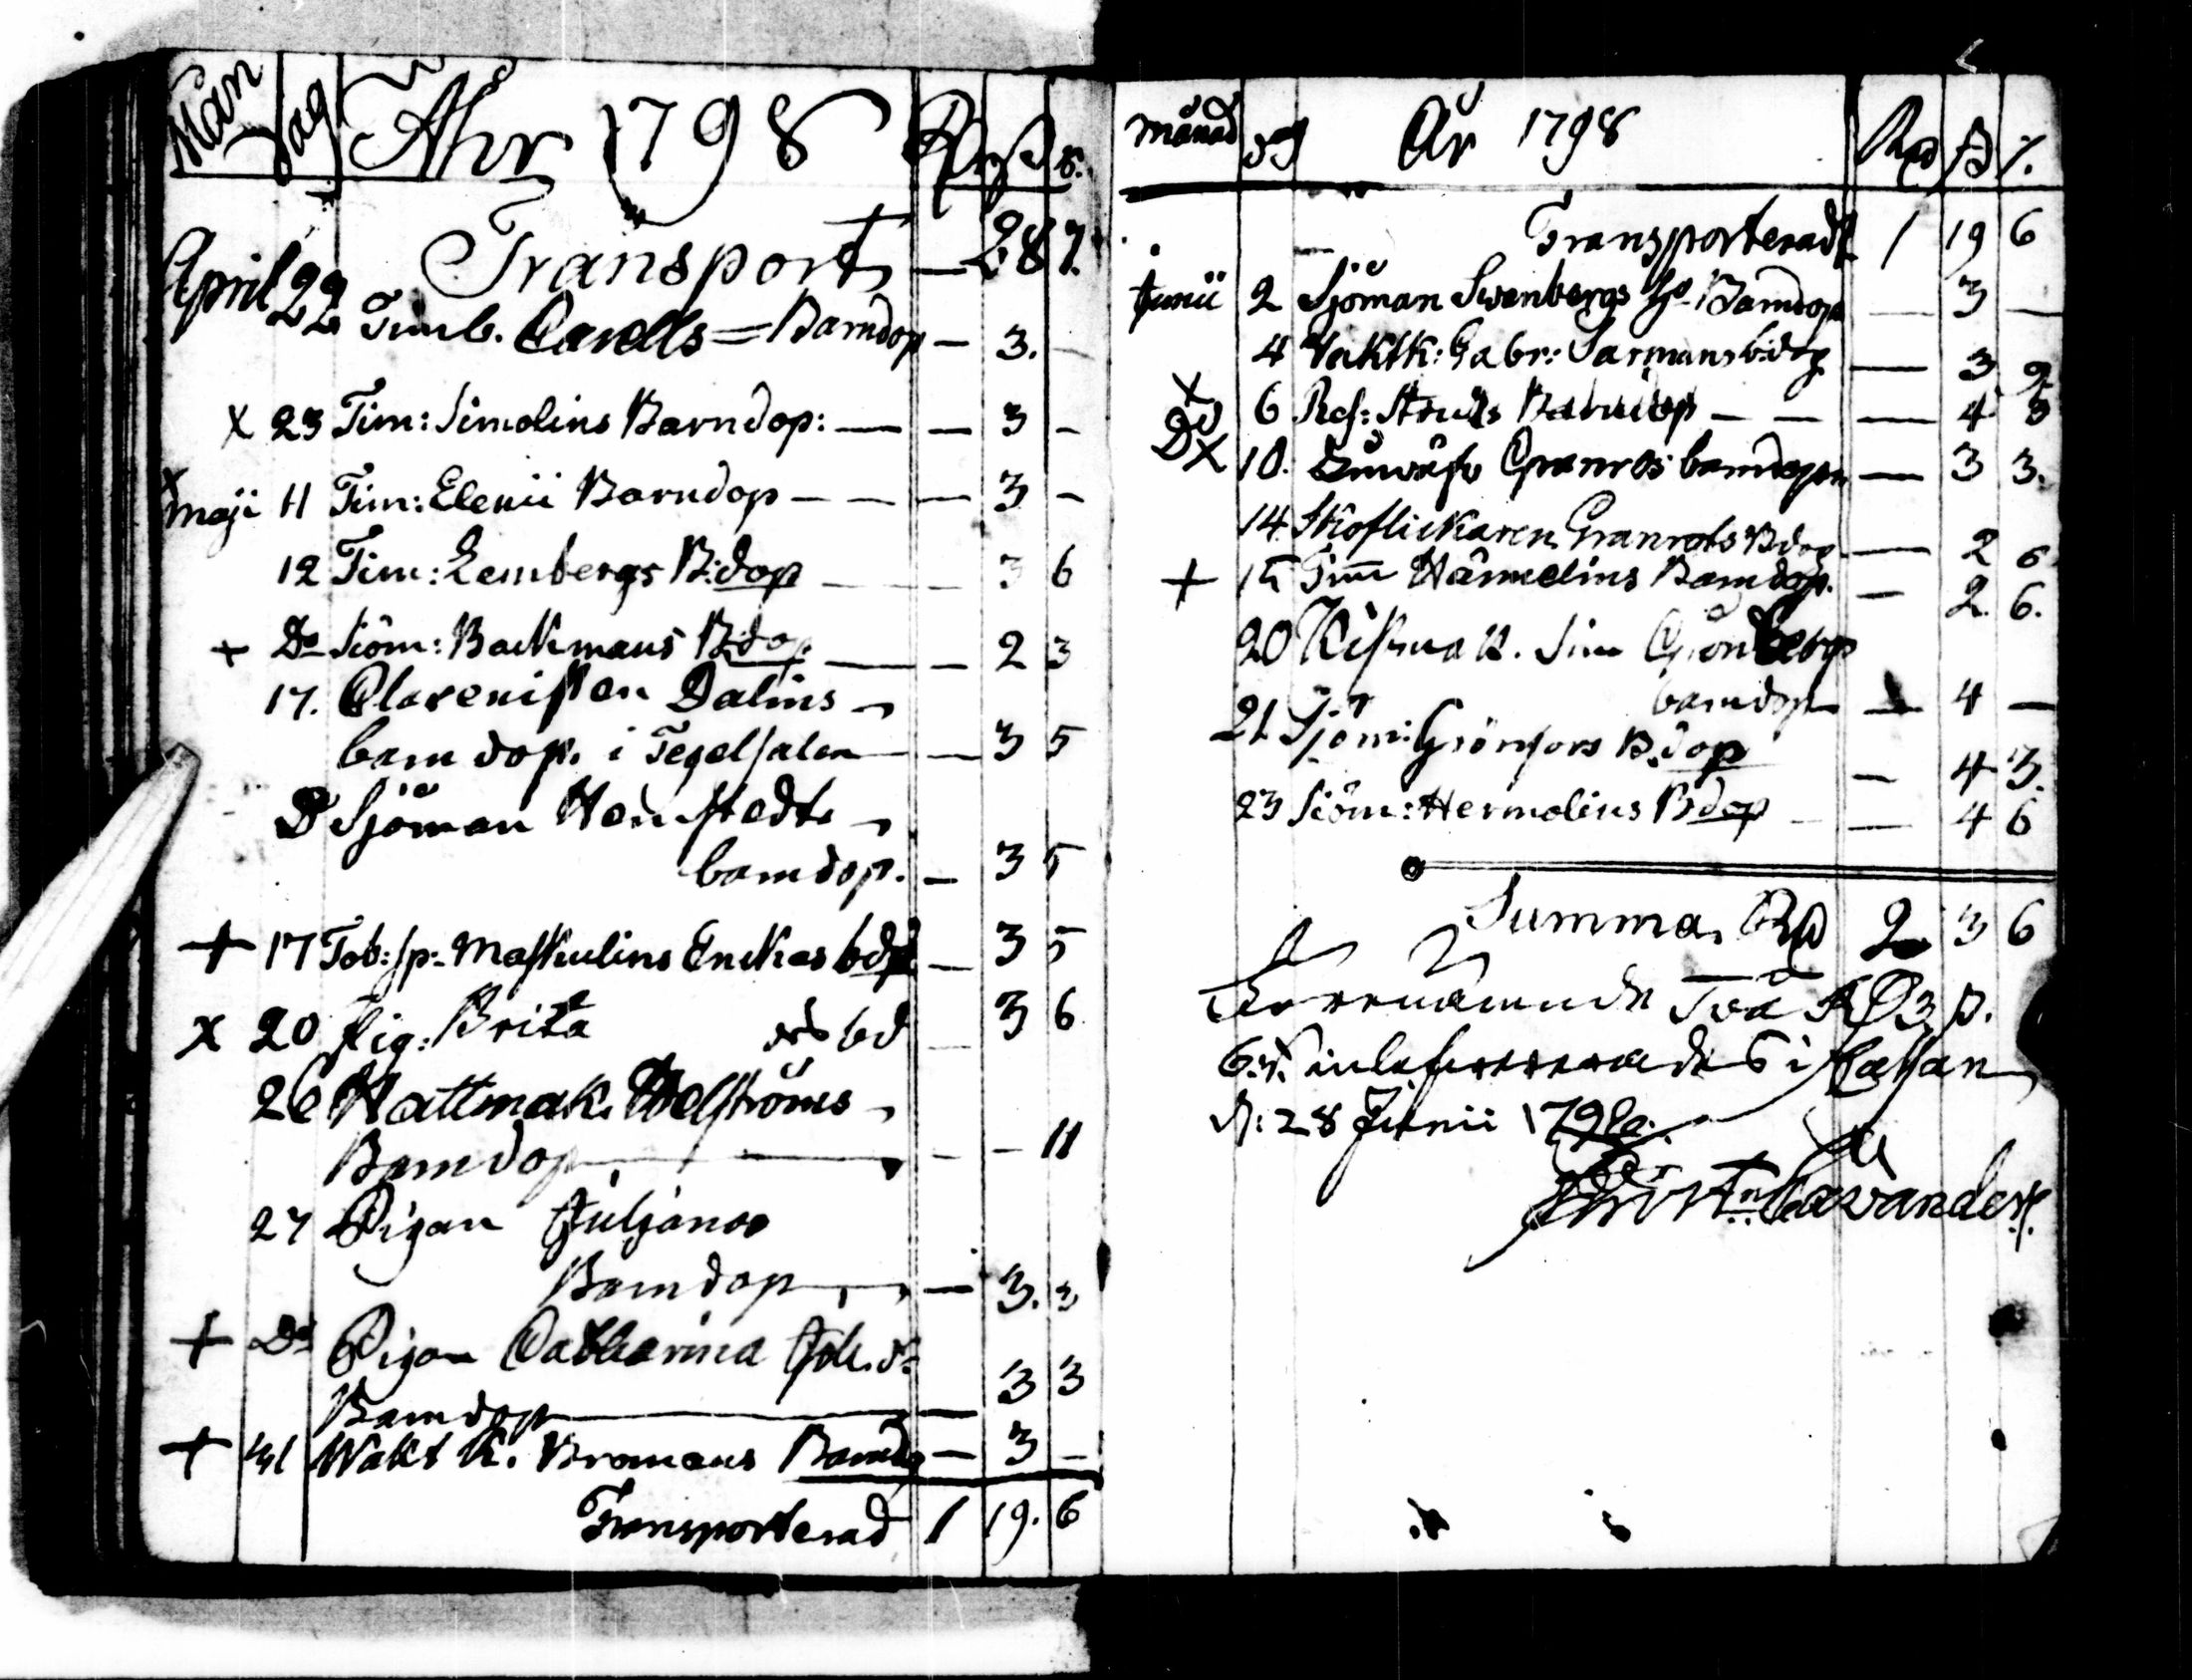 Mån Dag Åhr 1798 Rd ß r.
Transport — 28 7.
April 22 Timb. Carells = Barndop — 3. —
x 23 Tim: Simolins Barndop: — — 3 —
x Maji 11 Tim: Elenii Barndop — — — 3 —
12 Tim: Lembergs B:dop — — 3 6
+ Do Siöm: Backmans B:dop — — 2 3
17. Clarenisten Dalins
barndop. i Tegelsalen — 3 5
D Sjöman Henstedts
barndop. — 3 5
+ 17 Tob: sp. Maskulins Enckas bdp — 3 5
x 20 Pig: Brita bd — 3 6
26 Hattmak. Welströms
Barndop — — — 11
27 Pigan Juljanas
Barndop — 3. 3
+ Do Pigan Catharina Joh. dr
Barndop — 3 3
+ 31 Wakt K. Bromans Barndop — 3 —
Transporterad 1 19. 6
Månad dg År 1798 Rd ß r.
Transporterad 1 19 6
Junii 2 Sjöman Swenbergs Barndop — 3 —
4 Waktk: Gabr: Sarmans b:dop — 3 9
x 6 Barndop — — — 4 3
Do x 10. Granros barndopen — 3 3.
14 Skoflickaren Granrots Bdop — 2 6
+ 15 Tim Harmelins Barndop. — 2. 6.
20 Grönberg
barndop — 4 —
21 Sjöm: Grönfors B.dop — 4 3.
23 Siöm: Hermelins Bdop — — 4 6
Summa, Rd 2 3 6
Två RD 3 ß.
6 r. i Cassan
d: 28 Junii 1798.
Christn Cavander